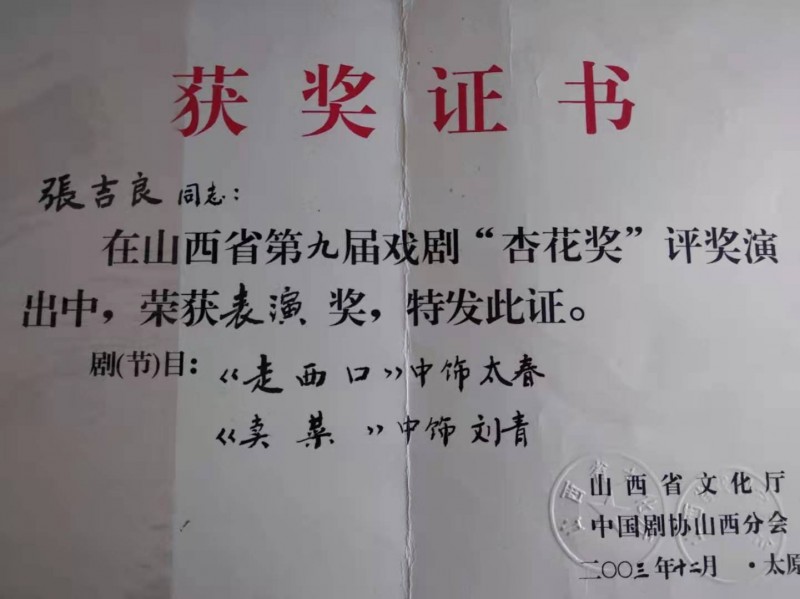 获奖证书
張吉良 同志：
在山西省第九届戏剧“杏花奖”评奖演
出中，荣获表演 奖，特发此证。
剧(节)目：《走西口》中饰太春
《卖菜》中饰刘青
山西省文化厅
中国剧协山西分会
二〇〇三年十二月 ·太原